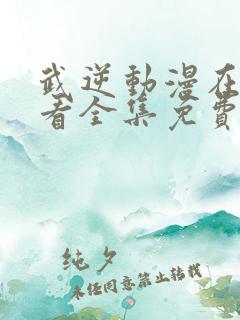 武逆動漫在
看全集免費
纯夕
未经同意禁止转载